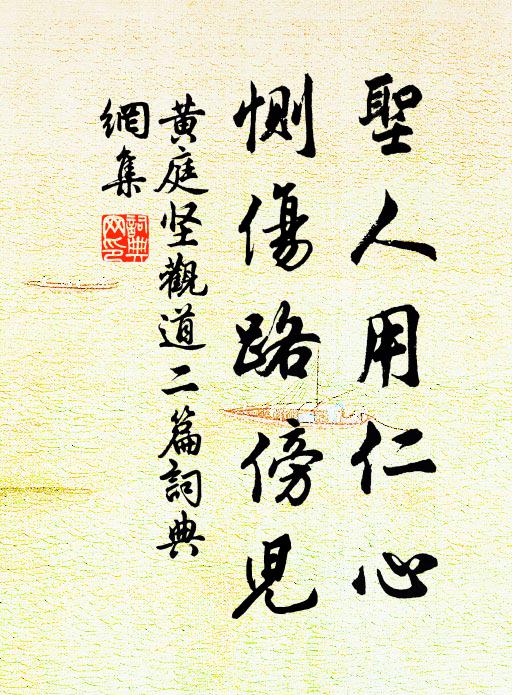 聖人用仁心
惻傷路傍児
黄庭坚觀道二篇詞典
網集
詞典
网印